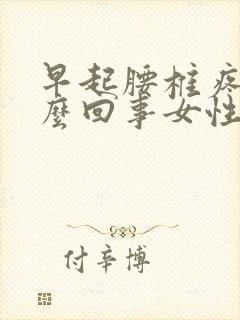 早起腰椎疼
麼回事女性
付辛博